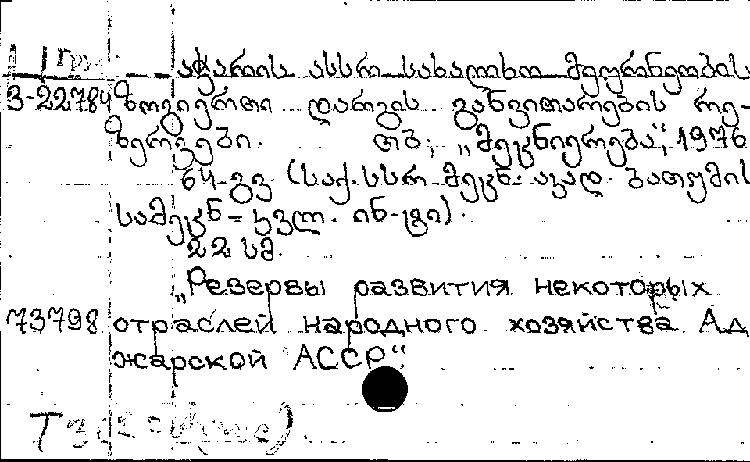 აჭარის ასსრ სახალხო მეურნეობის
3-22784 ზოგიერთი დარგის განვითარების რე-
ზერვები. თბ., „მეცნიერება", 1976
64 გვ (საქ. სსრ მეცნ. აკად. ბათუმის
სამეცნ-კვლ. ინ-ტი).
22 სმ.
„Резервы развития некоторых
73798 отраслей народного хозяйства Ад
жарской АССР".